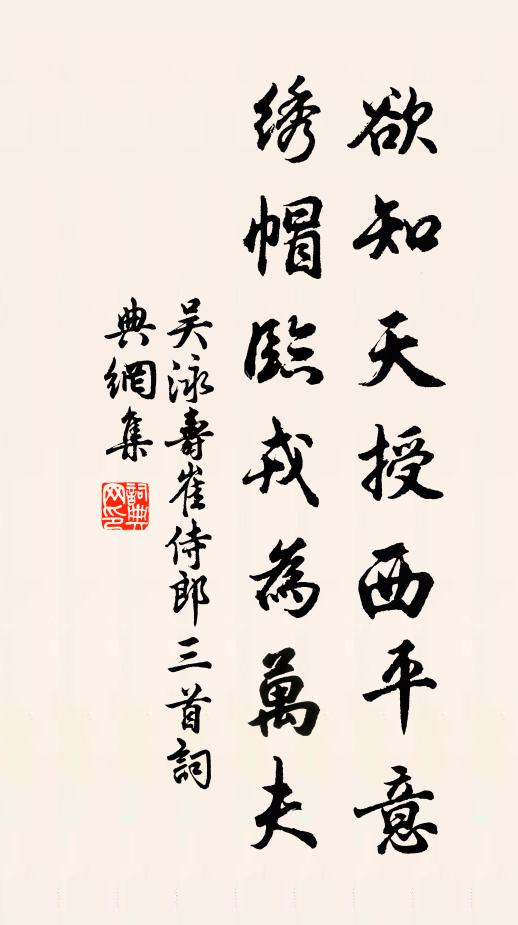 欲知天授西平意
绣帽臨戎為萬夫
吴泳壽崔侍郎三首詞
典網集
詞典網印